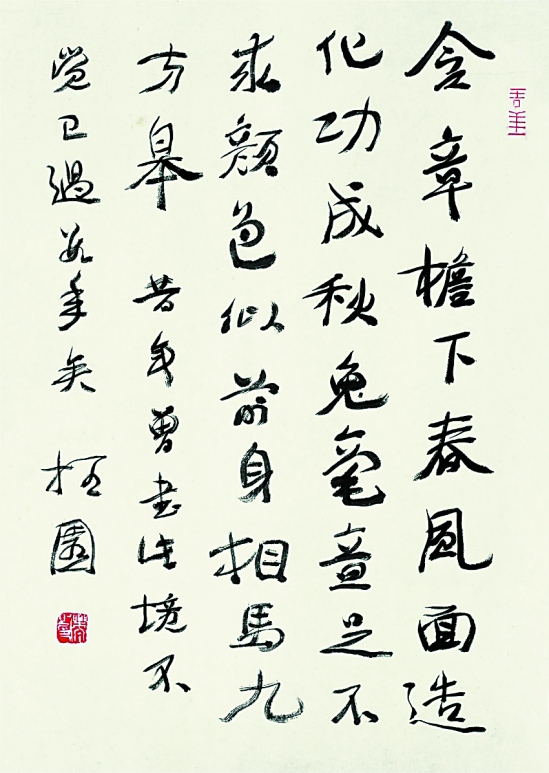 含章檐下春風面造
化功成秋兔毫意足不
求顏色似前身相馬九
方皋 昔年曾書境不
覺已過數年矣 園